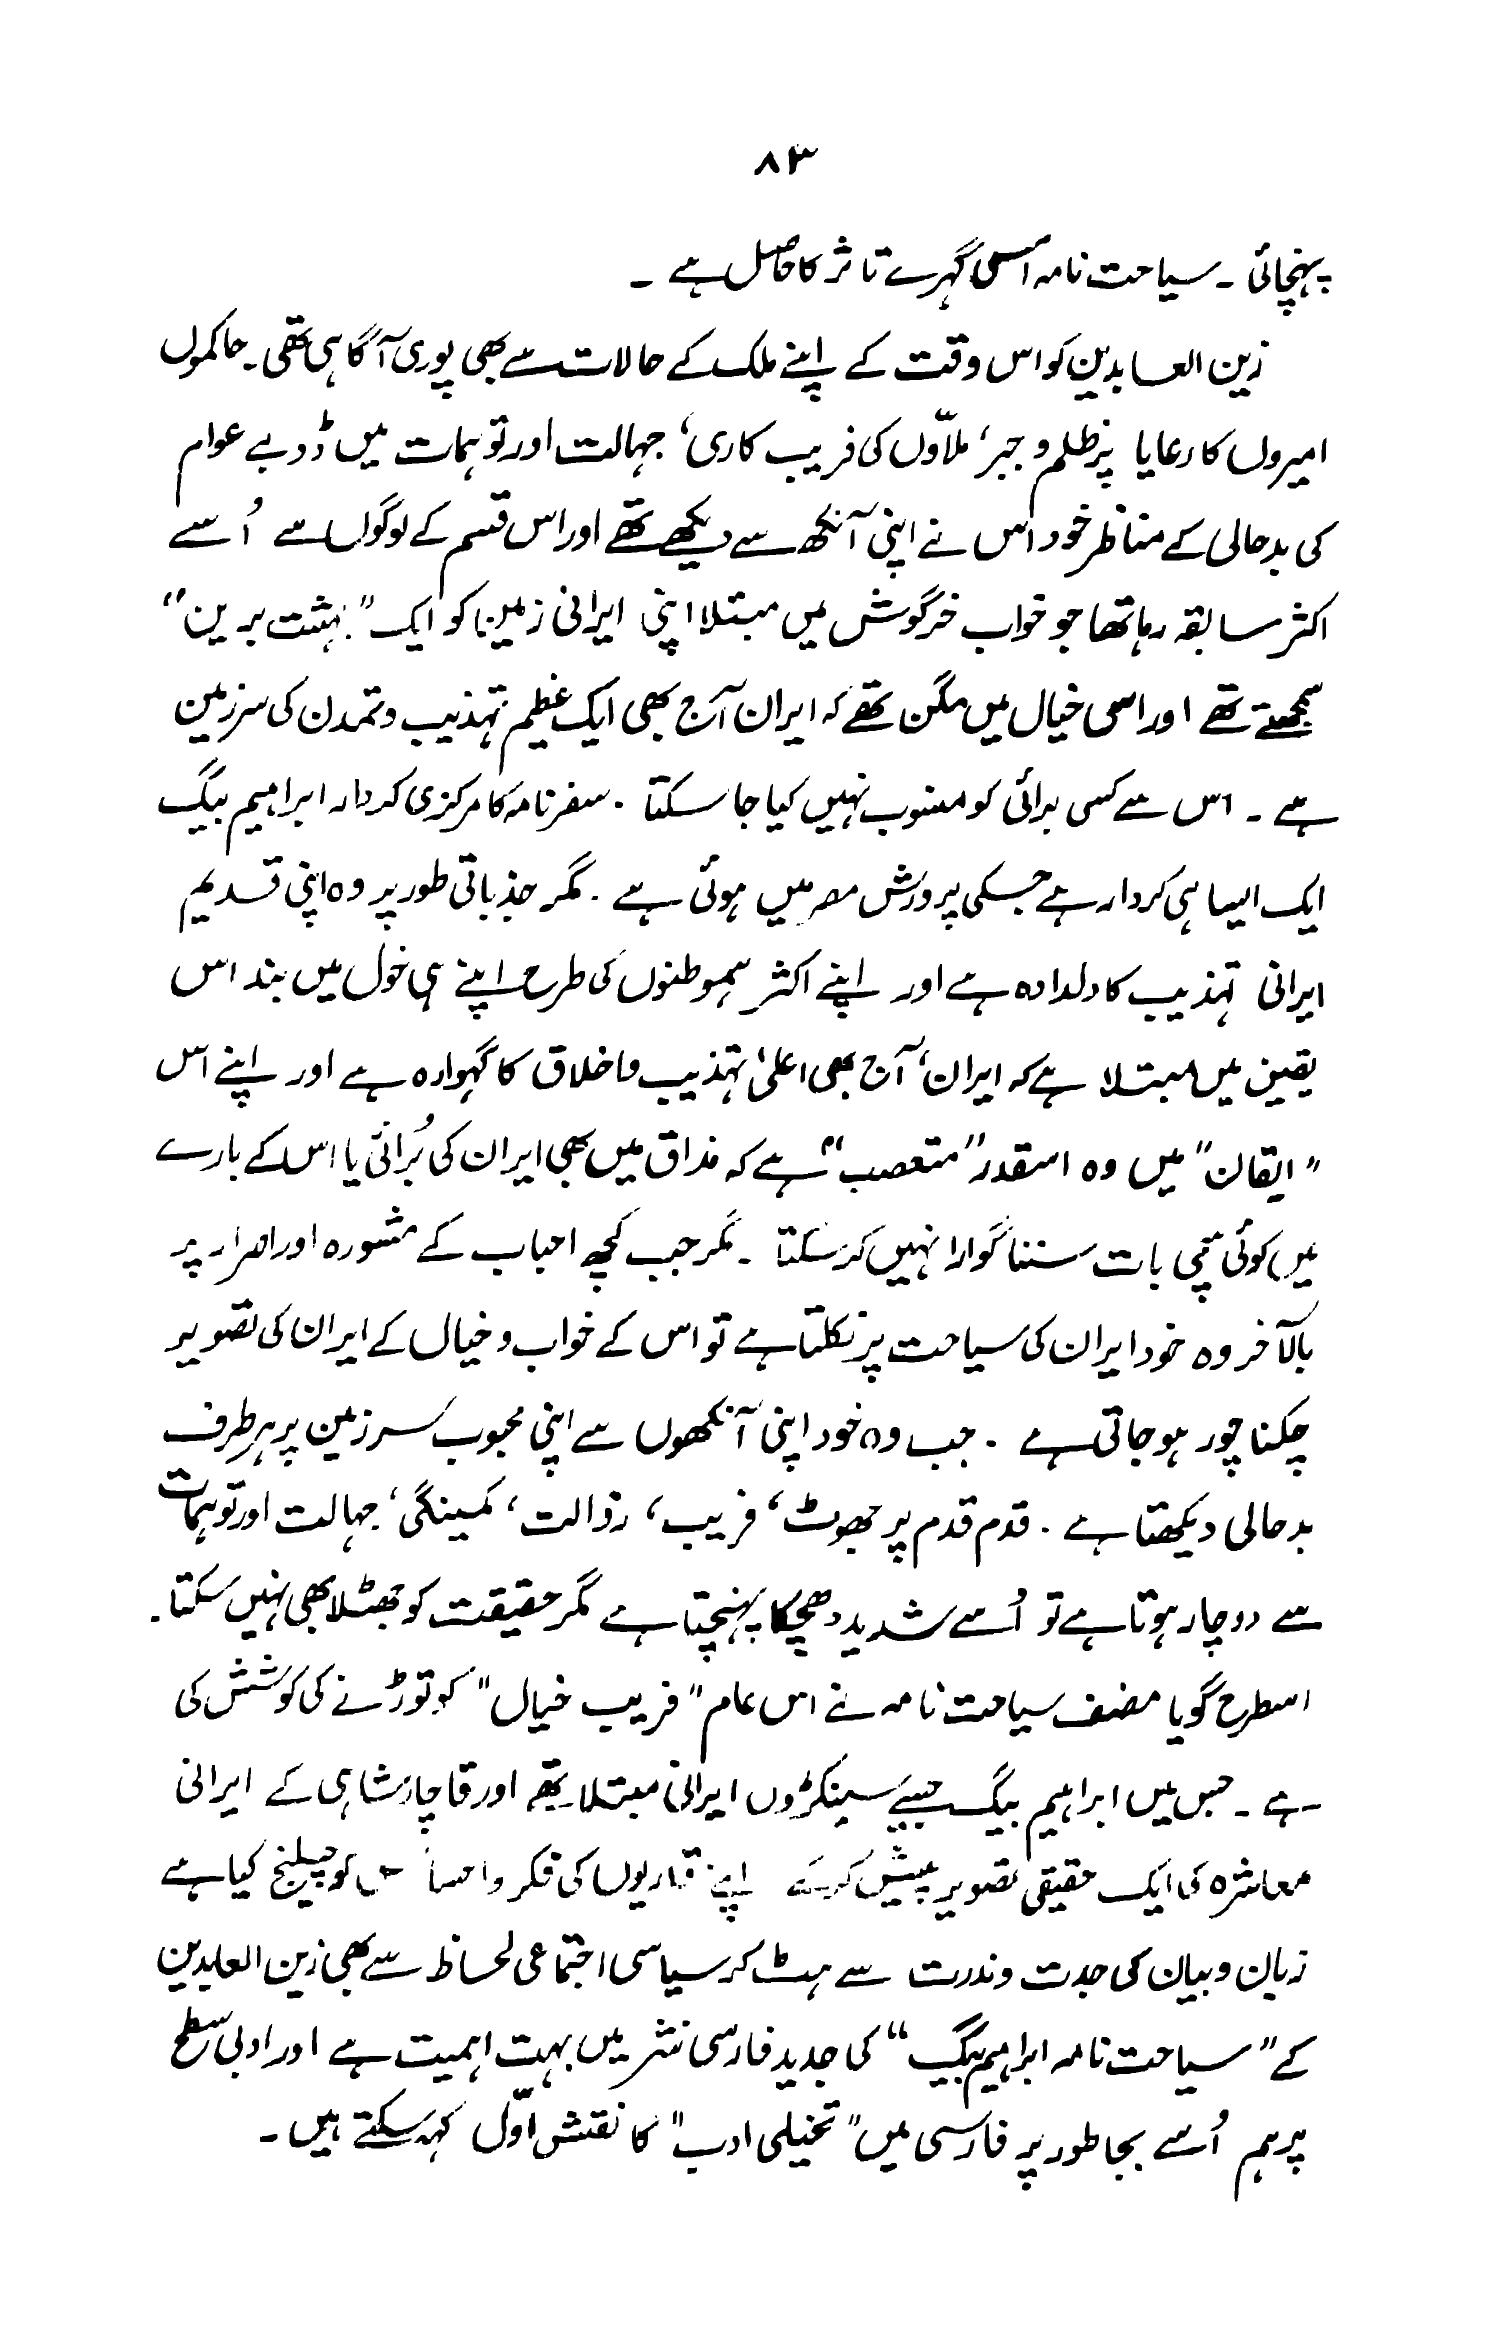 ۸۳
پہنچائی ۔ سیاحت نامہ اسی گہرے تاثر کا حاصل ہے ۔
زین العابدین کو اس وقت کے اپنے ملک کے حالات سے بھی پوری آگاہی تھی ۔ حاکموں
امیروں کا رعایا پر ظلم و جبر، ملاّوں کی فریب کاری، جہالت اور توہمات میں ڈوبے عوام
کی بدحالی کے مناظر خود اس نے اپنی آنکھ سے دیکھے تھے اور اس قسم کے لوگوں سے اُسے
اکثر سابقہ رہا تھا جو خواب خرگوش میں مبتلا اپنی ایرانی زمین کو ایک "بہشت برین"
سمجھتے تھے اور اسی خیال میں مگن تھے کہ ایران آج بھی ایک عظیم تہذیب و تمدن کی سرزمین
ہے ۔ اس سے کسی برائی کو منسوب نہیں کیا جا سکتا ۔ سفرنامہ کا مرکزی کردار ابراہیم بیگ
ایک ایسا ہی کردار ہے جسکی پرورش مصر میں ہوئی ہے ۔ مگر جذباتی طور پر وہ اپنی قدیم
ایرانی تہذیب کا دلدادہ ہے اور اپنے اکثر ہموطنوں کی طرح اپنے ہی خول میں بند اس
یقین میں مبتلا ہے کہ ایران، آج بھی اعلیٰ تہذیب و اخلاق کا گہوارہ ہے اور اپنے اس
"ایقان" میں وہ اسقدر "متعصب" ہے کہ مذاق میں بھی ایران کی بُرائی یا اس کے بارے
میں کوئی سچی بات سننا گوارا نہیں کر سکتا ۔ مگر جب کچھ احباب کے مشورہ اور اصرار پر
بالآخر وہ خود ایران کی سیاحت پر نکلتا ہے تو اس کے خواب و خیال کے ایران کی تصویر
چکنا چور ہو جاتی ہے ۔ جب وہ خود اپنی آنکھوں سے اپنی محبوب سرزمین پر ہر طرف
بدحالی دیکھتا ہے ۔ قدم قدم پر جھوٹ، فریب، رذالت، کمینگی، جہالت اور توہمات
سے دوچار ہوتا ہے تو اُسے شدید دھچکا پہنچتا ہے مگر حقیقت کو جھٹلا بھی نہیں سکتا ۔
اسطرح گویا مصنف سیاحت نامہ نے اس عام "فریب خیال" کو توڑنے کی کوشش کی
ہے ۔ جس میں ابراہیم بیگ جیسے سینکڑوں ایرانی مبتلا تھے اور قاچار شاہی کے ایرانی
معاشرہ کی ایک حقیقی تصویر پیش کرکے اپنے قاریوں کی فکر و احساس کو چیلنج کیا ہے
زبان و بیان کی جدت و ندرت سے ہٹ کر سیاسی اجتماعی لحاظ سے بھی زین العابدین
کے "سیاحت نامہ ابراہیم بیگ" کی جدید فارسی نثر میں بہت اہمیت ہے اور ادبی سطح
پر ہم اُسے بجا طور پر فارسی میں "تخیلی ادب" کا نقش اوّل کہہ سکتے ہیں ۔